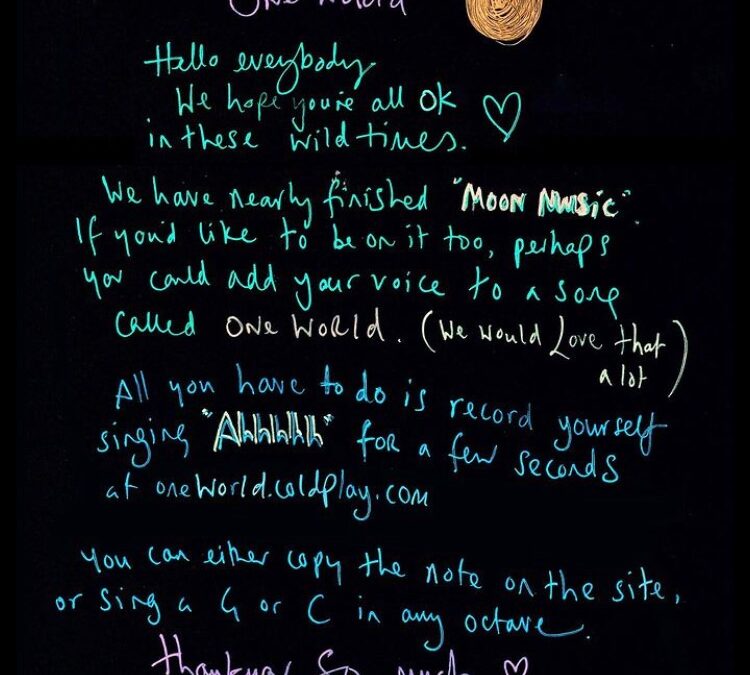 One World
Hello everybody.
We hope you're all OK ♡
in these wild times.
We have nearly finished "MOON MUSiC".
If you'd like to be on it too, perhaps
you could add your voice to a song
called ONE WORLD. (We would Love that
a lot)
All you have to do is record yourself
singing "Ahhhhh" for a few seconds
at oneworld.coldplay.com
you can either copy the note on the site,
or sing a G or C in any octave.
thankyou so much ♡